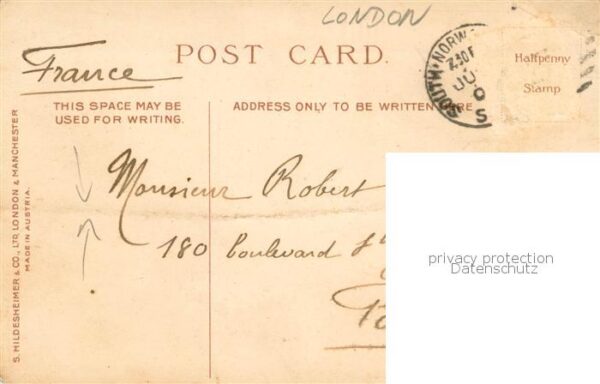 LONDON
POST CARD.
France
THIS SPACE MAY BE
USED FOR WRITING.
ADDRESS ONLY TO BE WRITTEN HERE
Halfpenny
Stamp
SOUTH·NORW
7.30 P
JU
9
S
Monsieur Robert
180 boulevard
privacy protection
Datenschutz
S. HILDESHEIMER & CO., LTD. LONDON & MANCHESTER
MADE IN AUSTRIA.